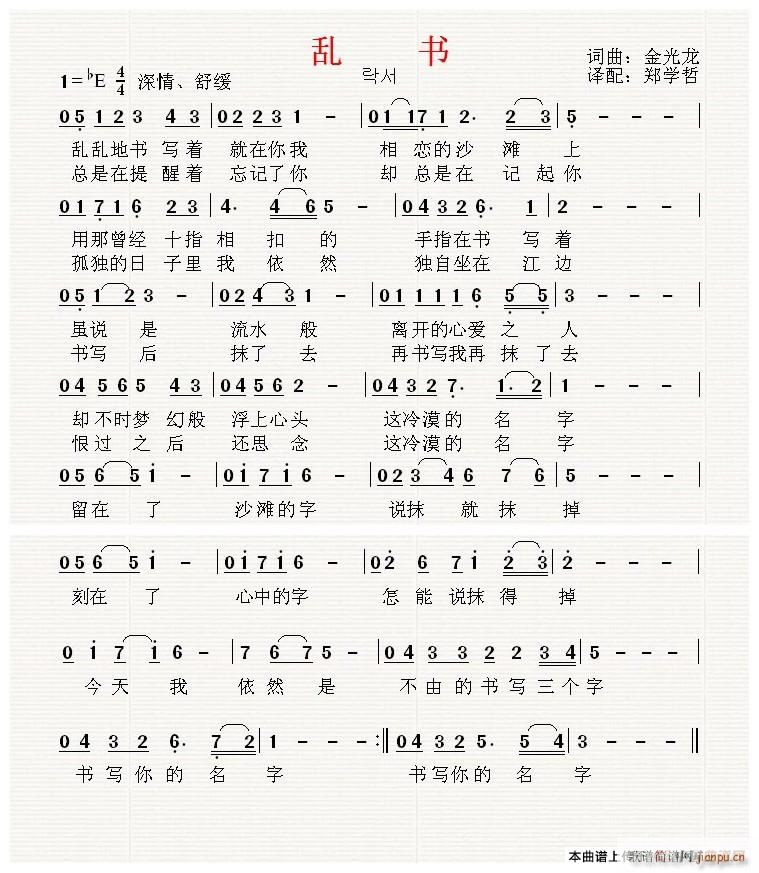 乱 书
락서
词曲：金光龙
译配：郑学哲
1=♭E 4/4 深情、舒缓
0 5 1 2 3 4 3 | 0 2 2 3 1 - | 0 1 1 7 1 2. 2 3 | 5 - - - |
乱乱地书 写着 就在你我 相 恋的沙 滩 上
总是在提 醒着 忘记了你 却 总是在 记 起 你
0 1 7 1 6 2 3 | 4. 4 6 5 - | 0 4 3 2 6. 1 | 2 - - - |
用那曾经 十指 相 扣 的 手指在书 写 着
孤独的日 子里 我 依 然 独自坐在 江 边
0 5 1 2 3 - | 0 2 4 3 1 - | 0 1 1 1 1 6 5 5 | 3 - - - |
虽说 是 流水 般 离开的心爱 之 人
书写 后 抹了 去 再书写我再 抹 了 去
0 4 5 6 5 4 3 | 0 4 5 6 2 - | 0 4 3 2 7. 1. 2 | 1 - - - |
却 不时梦 幻般 浮上心头 这冷漠的 名 字
恨 过 之 后 还思 念 这冷漠的 名 字
0 5 6 5 1 - | 0 1 7 1 6 - | 0 2 3 4 6 7 6 | 5 - - - |
留在 了 沙滩的字 说抹 就 抹 掉
0 5 6 5 1 - | 0 1 7 1 6 - | 0 2 6 7 1 2 3 | 2 - - - |
刻在 了 心中的字 怎 能 说抹 得 掉
0 1 7 1 6 - | 7 6 7 5 - | 0 4 3 3 2 2 3 4 | 5 - - - |
今 天 我 依 然 是 不 由 的 书 写 三 个 字
0 4 3 2 6. 7 2 | 1 - - - :‖ 0 4 3 2 5. 5 4 | 3 - - - ‖
书 写 你 的 名 字 书 写 你 的 名 字
本曲谱上传于 简谱网 jianpu.cn